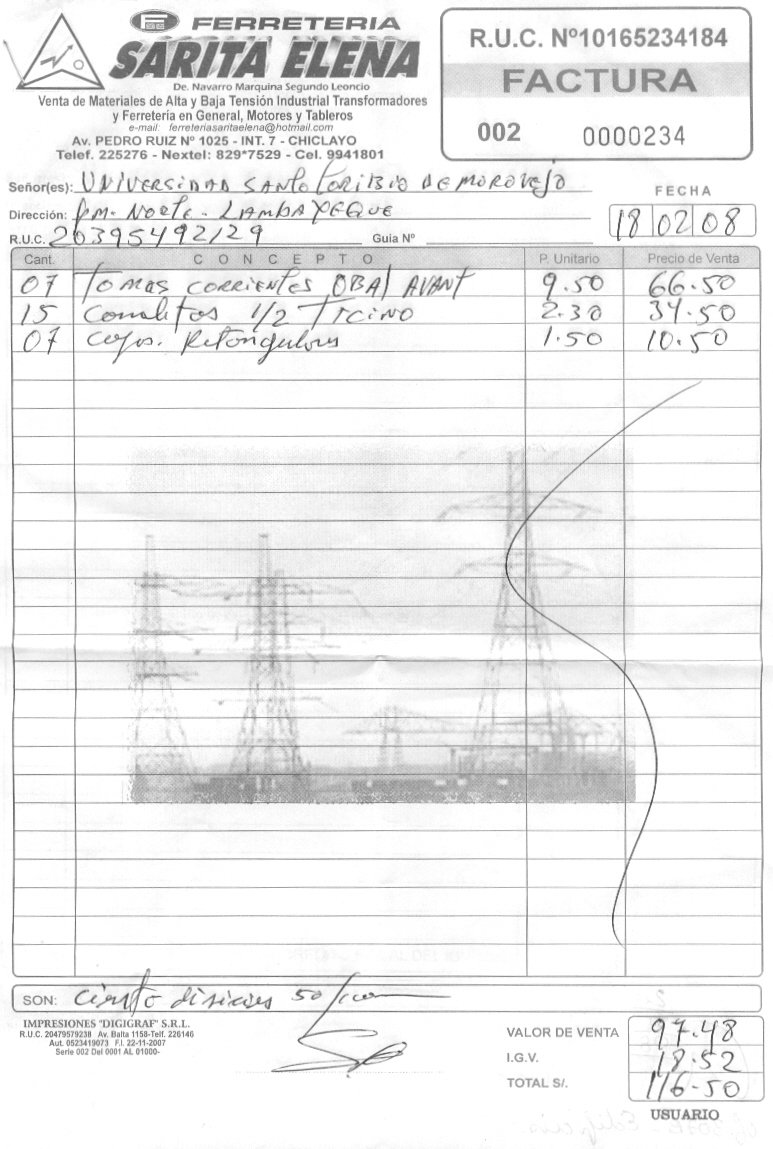 FERRETERIA
SARITA ELENA
De. Navarro Marquina Segundo Leoncio
Venta de Materiales de Alta y Baja Tensión Industrial Transformadores
y Ferretería en General, Motores y Tableros
e-mail: ferreteriasantaelena@hotmail.com
Av. PEDRO RUIZ Nº 1025 - INT. 7 - CHICLAYO
Telef. 225276 - Nextel: 829*7529 - Cel. 9941801
R.U.C. Nº10165234184
FACTURA
002 0000234
Señor(es): UNIVERSIDAD SANTO TORIBIO DE MOROVEJO
FECHA
Dirección: PM. NORTE - LAMBAYEQUE
18 02 08
R.U.C. 20395492129 Guia Nº
Cant. CONCEPTO P. Unitario Precio de Venta
07 TOMAS CORRIENTES OBAl AVANT 9.50 66.50
15 1/2 TICINO 2.30 34.50
07 1.50 10.50
SON: 50/100
IMPRESIONES "DIGIGRAF" S.R.L.
R.U.C. 20479579238 Av. Balta 1158-Telf. 226146
Aut. 0523419073 F.I. 22-11-2007
Serie 002 Del 0001 AL 01000-
VALOR DE VENTA 97.48
I.G.V. 18.52
TOTAL S/. 116.50
USUARIO